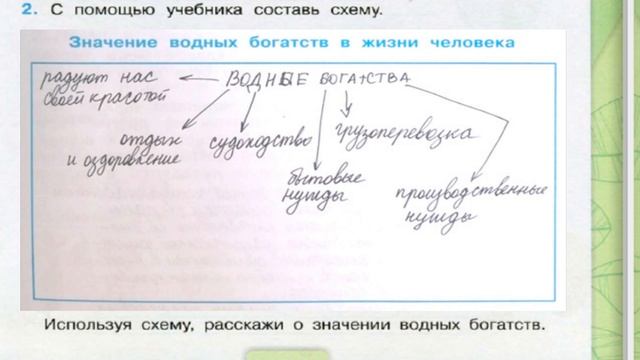 2. С помощью учебника составь схему.
Значение водных богатств в жизни человека
радуют нас
своей красотой
ВОДНЫЕ БОГАТСТВА
отдых
и оздоровление
судоходство
грузоперевозка
бытовые
нужды
производственные
нужды
Используя схему, расскажи о значении водных богатств.